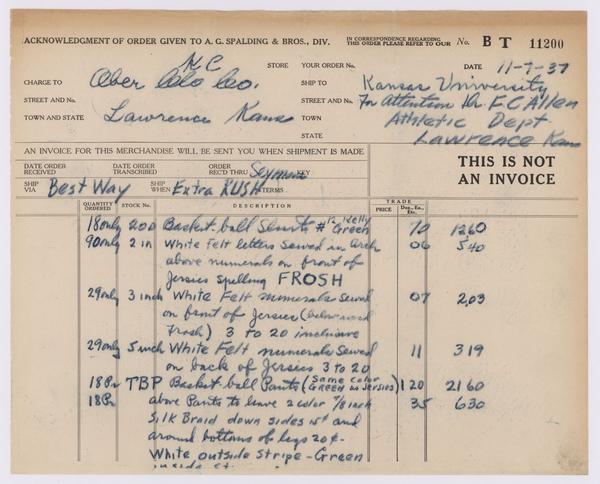 ACKNOWLEDGMENT OF ORDER GIVEN TO A. G. SPALDING & BROS., DIV. IN CORRESPONDENCE REGARDING THIS ORDER PLEASE REFER TO OUR No. BT 11200
K.C. STORE YOUR ORDER No. DATE 11-7-37
CHARGE TO Ober Clo Co. SHIP TO Kansas University
STREET AND No. STREET AND No. For Attention Dr. F C Allen
TOWN AND STATE Lawrence Kans TOWN AND STATE Athletic Dept
Lawrence Kans
AN INVOICE FOR THIS MERCHANDISE WILL BE SENT YOU WHEN SHIPMENT IS MADE
THIS IS NOT AN INVOICE
DATE ORDER RECEIVED DATE ORDER TRANSCRIBED ORDER REC'D THRU Seymour KEY
SHIP VIA Best Way SHIP WHEN Extra RUSH TERMS
QUANTITY ORDERED STOCK No. DESCRIPTION TRADE PRICE Doz., Ea., Etc.
18 only 200 Basket-ball Shirts #12 Kelly Green 70 1260
90 only 2 in White Felt letters sewed in arch 06 540
above numerals on front of
Jersies spelling FROSH
29 only 3 inch White Felt numerals sewed 07 2,03
on front of Jersies (below word
Frosh) 3 to 20 inclusive
29 only 5 inch White Felt numerals Sewed 11 319
on back of Jersies 3 to 20
18 Pr TBP Basket-ball Pants (Same color GREEN as Jersies) 120 2160
18 Pr above Pants to have 2 color 7/8 inch 35 630
Silk Braid down sides 15¢ and
around bottoms of legs 20¢-
White outside Stripe - Green
inside